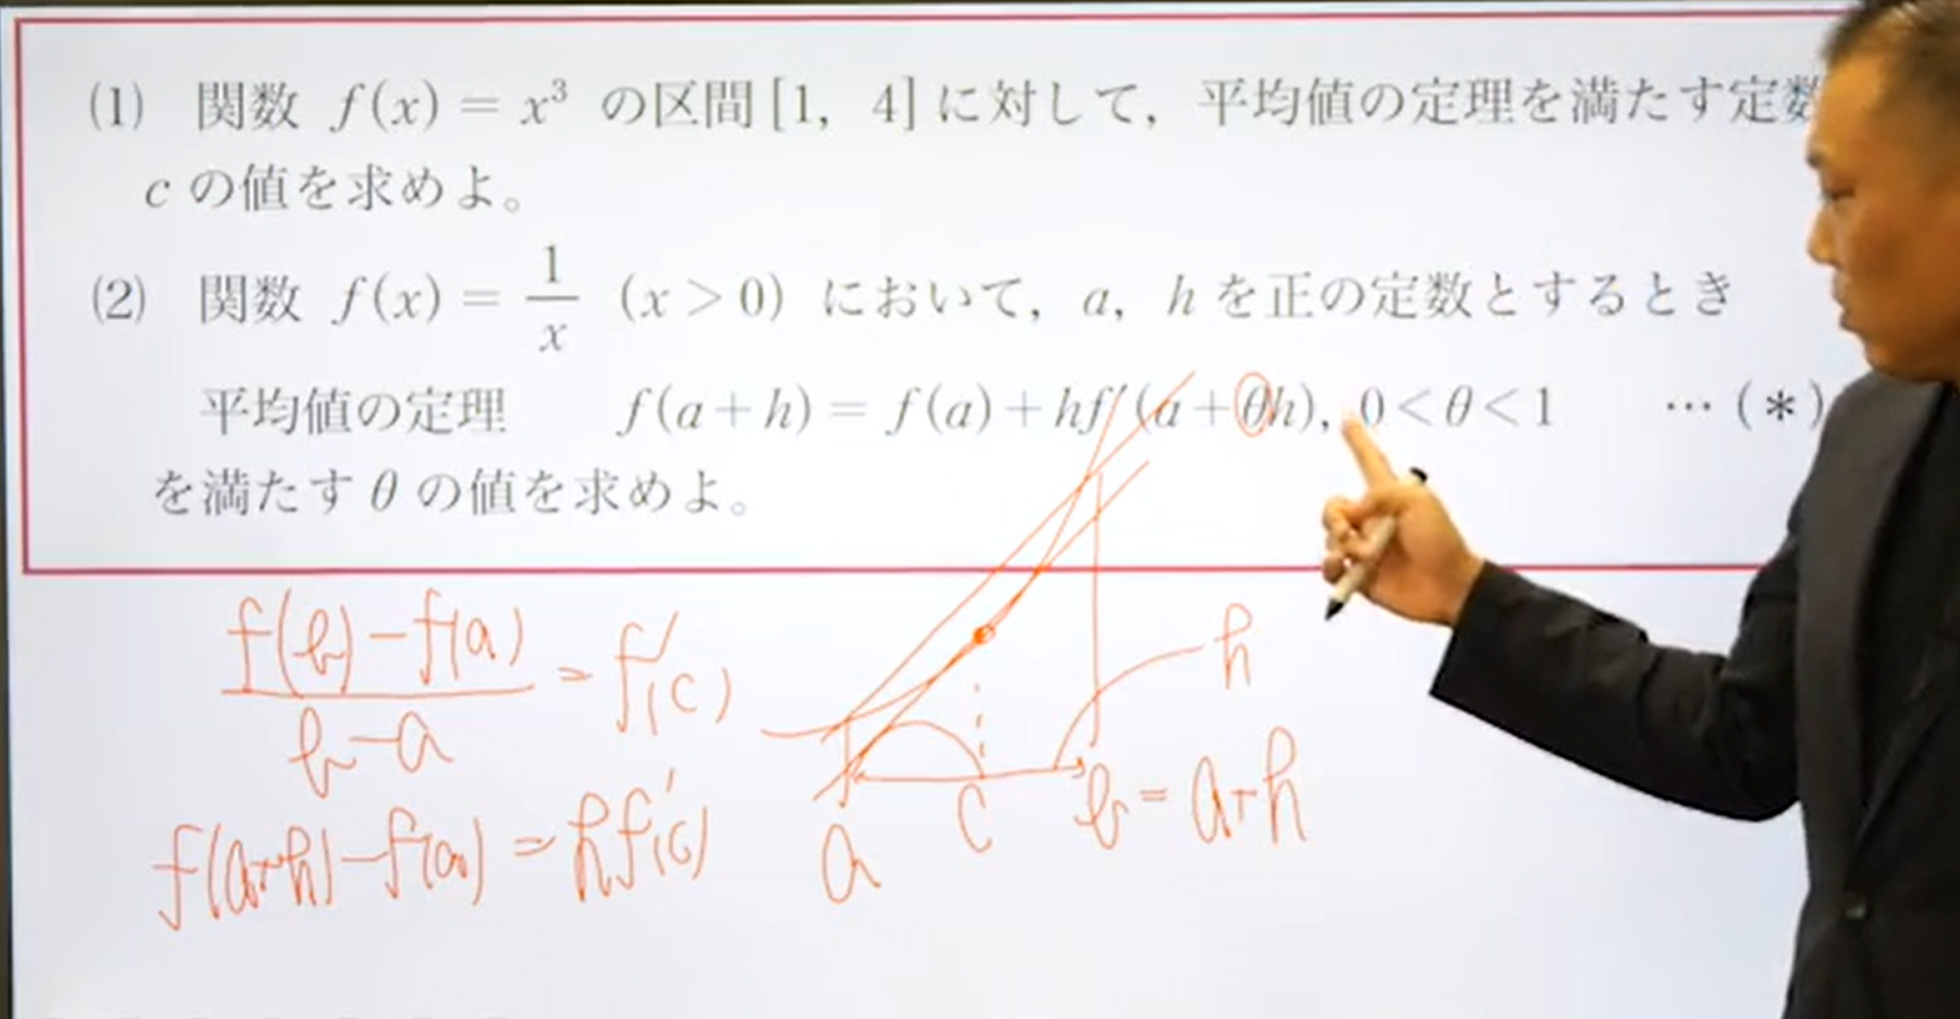 (1) 関数 f(x) = x³ の区間 [1, 4] に対して，平均値の定理を満たす定数
c の値を求めよ。
(2) 関数 f(x) = 1/x (x > 0) において，a，h を正の定数とするとき
平均値の定理 f(a+h) = f(a) + hf′(a+θh), 0<θ<1 … (*)
を満たす θ の値を求めよ。
(f(b)-f(a))/(b-a) = f′(c)
f(a+h)-f(a) = hf′(c)
h
a c b = a+h